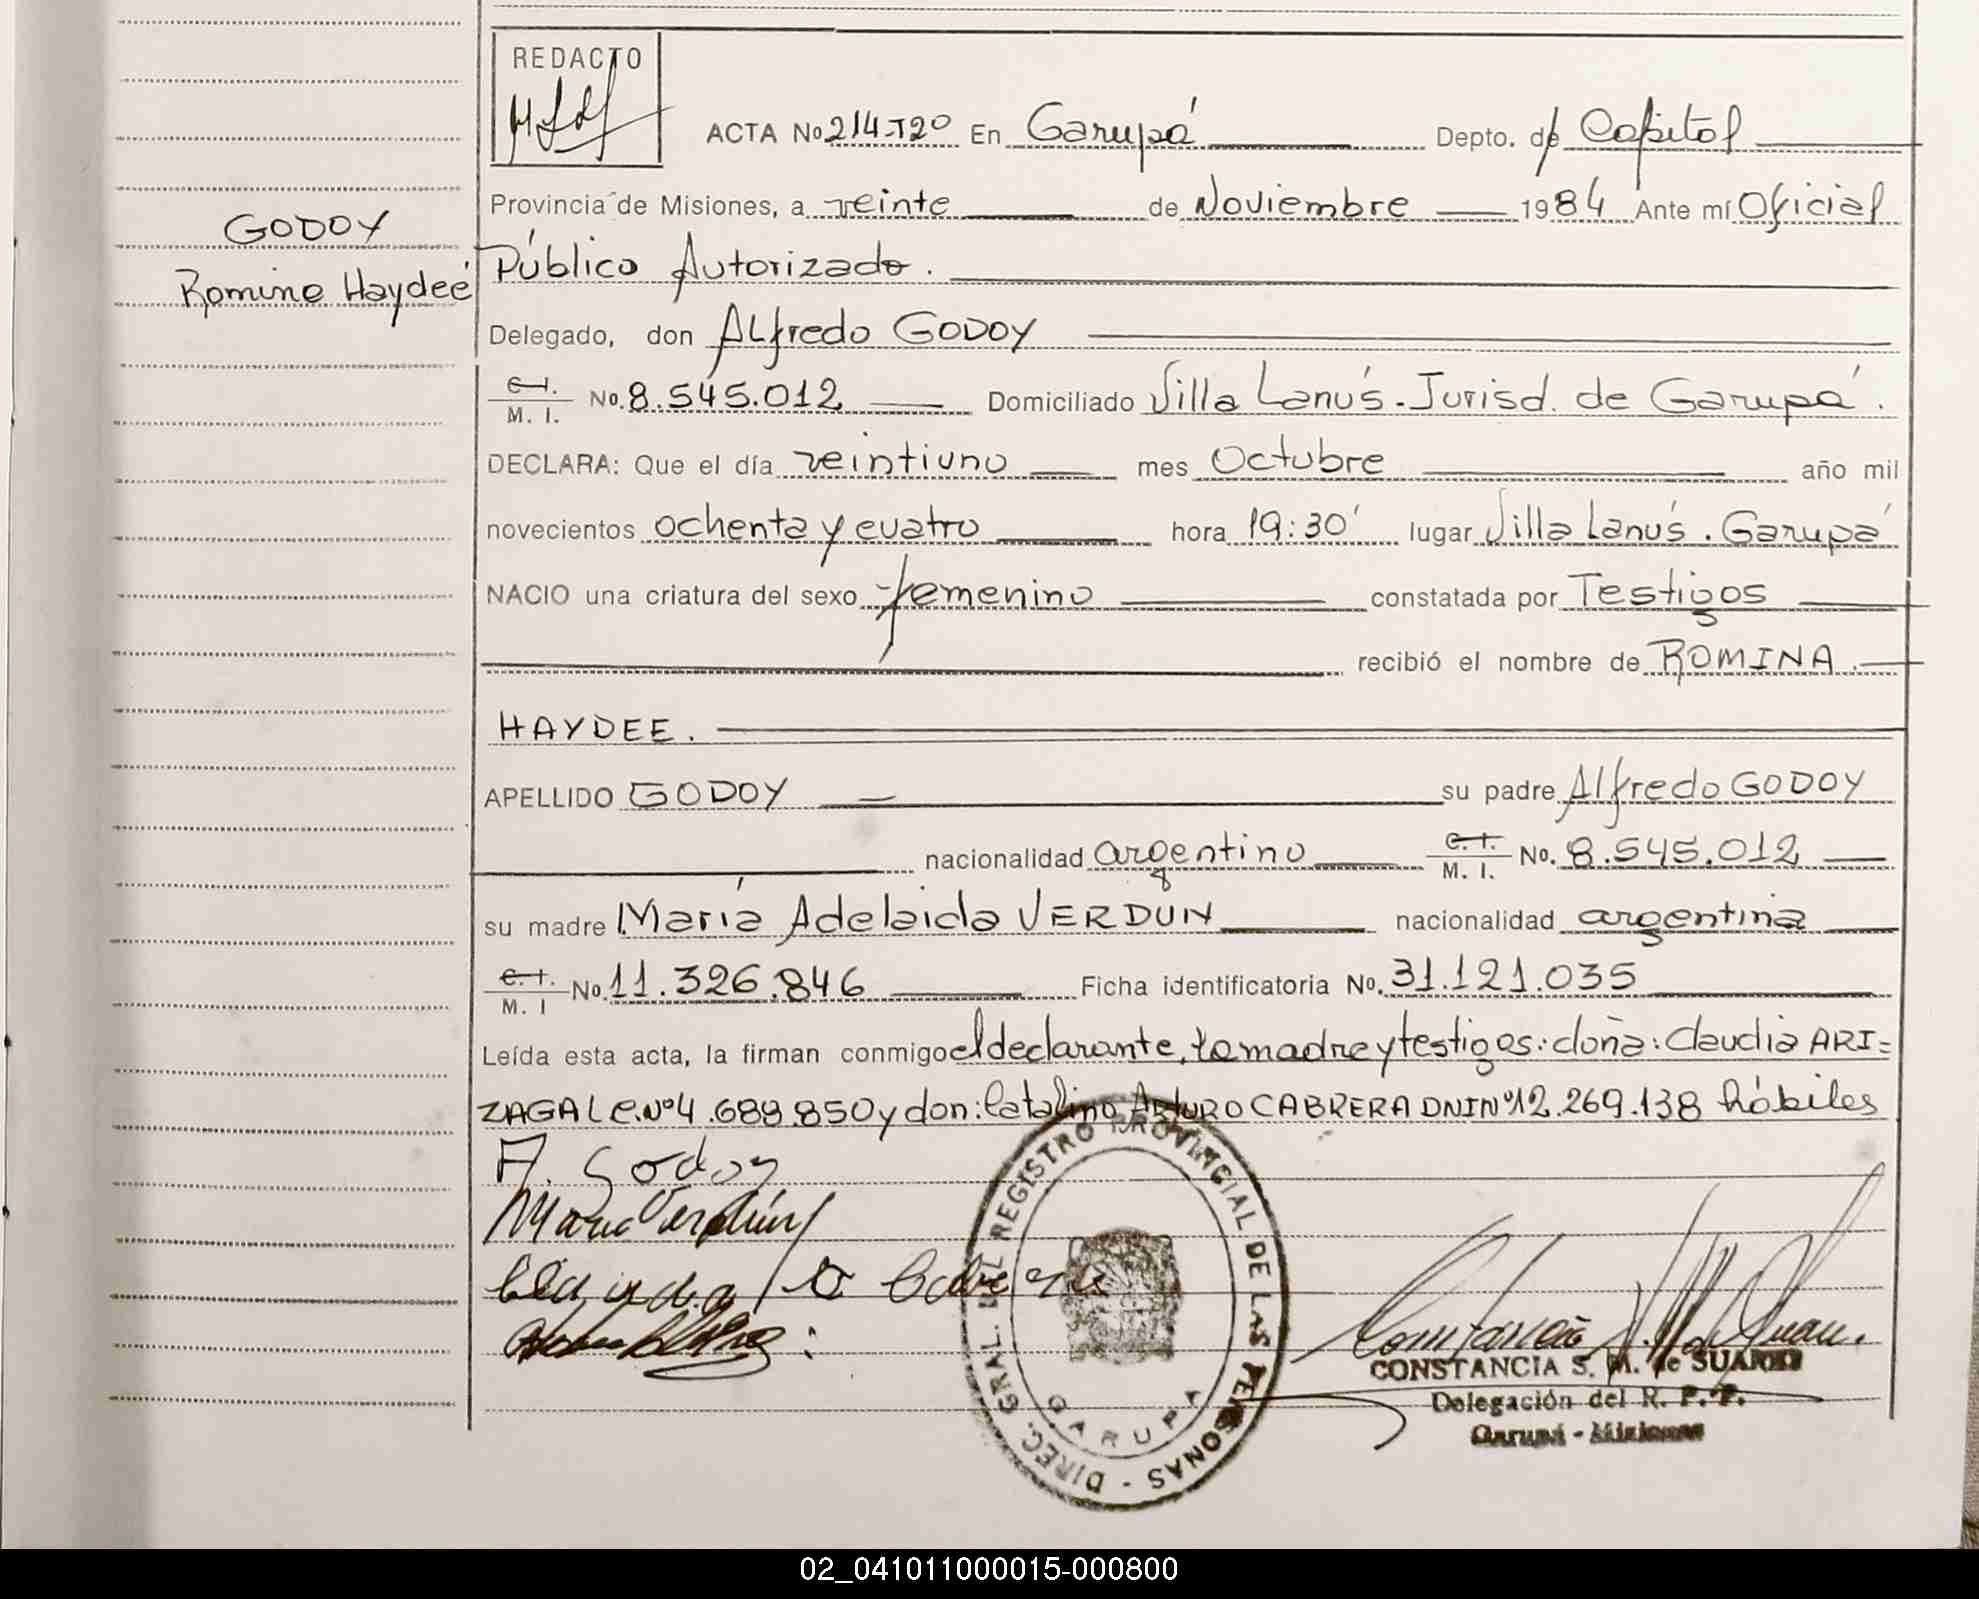 REDACTO
ACTA No 214-T20 En Garupá Depto. de Capital
Provincia de Misiones, a veinte de Noviembre 1984 Ante mí Oficial
GODOY
Público Autorizado.
Romina Haydeé
Delegado, don Alfredo GODOY
C.I. M. I. No. 8.545.012 Domiciliado Villa Lanús. Jurisd. de Garupá.
DECLARA: Que el día veintiuno mes Octubre año mil
novecientos ochenta y cuatro hora 19:30' lugar Villa Lanús. Garupá
NACIO una criatura del sexo femenino constatada por Testigos
recibió el nombre de ROMINA.
HAYDEE.
APELLIDO GODOY su padre Alfredo GODOY
nacionalidad argentino C.I. M. I. No. 8.545.012
su madre María Adelaida VERDUN nacionalidad argentina
C.I. M. I No. 11.326.846 Ficha identificatoria No. 31.121.035
Leída esta acta, la firman conmigo el declarante, la madre y testigos: doña: Claudia ARI=
ZAGA LC.Nº 4.689.850 y don: Catalino Arturo CABRERA DNI Nº 12.269.138 hábiles
A. Godoy
Maria Verdún
DIREC. GRAL. DEL REGISTRO PROVINCIAL DE LAS PERSONAS -
GARUPA
CONSTANCIA S. M. de SUAREZ
Delegación del R. P. P.
Garupá - Misiones
02_041011000015-000800